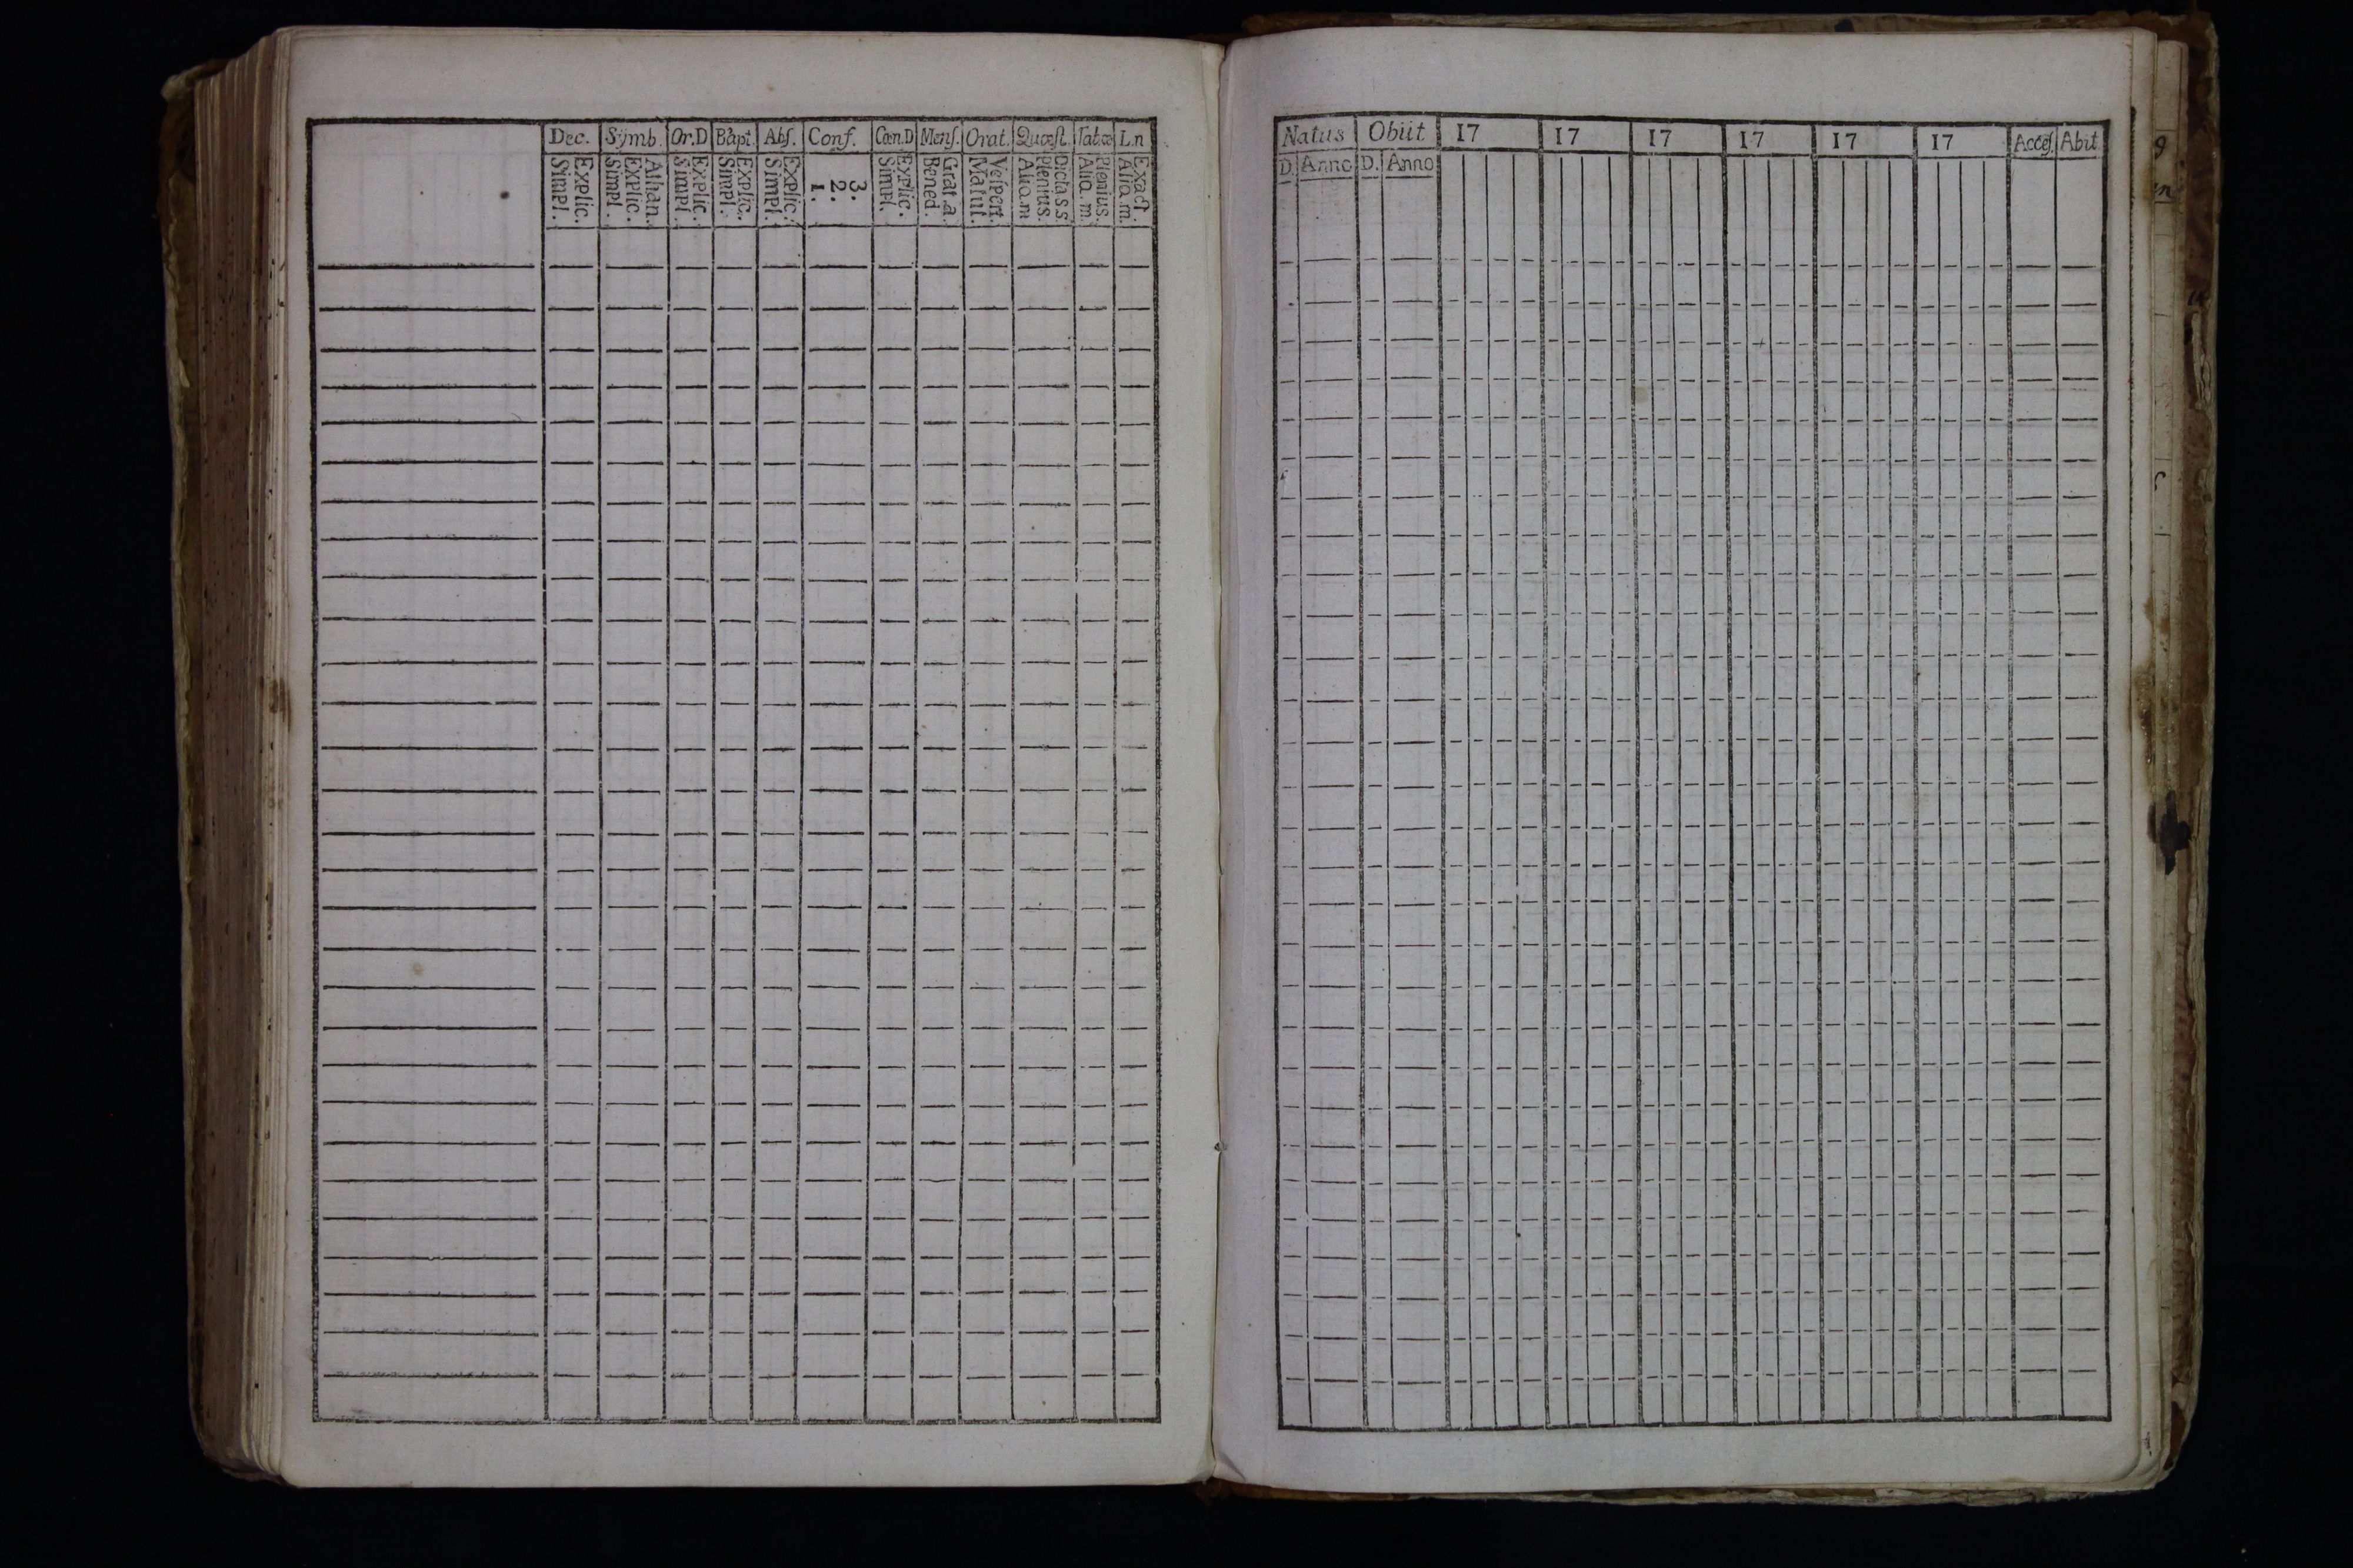 Dec. Sÿmb. Or.D Båpt. Abſ. Conf. Cœn.D Menſ. Orat. Quæſt. Tabœ L.n
Explic. Simpl.
Athan. Explic. Simpl.
Explic. Simpl.
Explic. Simpl.
Explic. Simpl.
3. 2. 1.
Explic. Simpl.
Grat.a. Bened.
Veſpert. Matut.
Dicta s s. Plenius. Alia.m
Plenius. Alia.m.
Exact. Alia.m.
Natus Obiit 17 17 17 17 17 17 Acceſ. Abit
D. Anno D. Anno